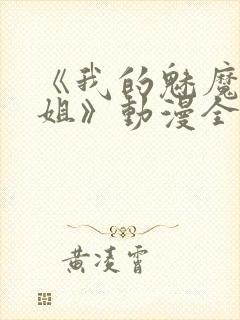 《我的魅魔
姐》動漫全
黄凌霄